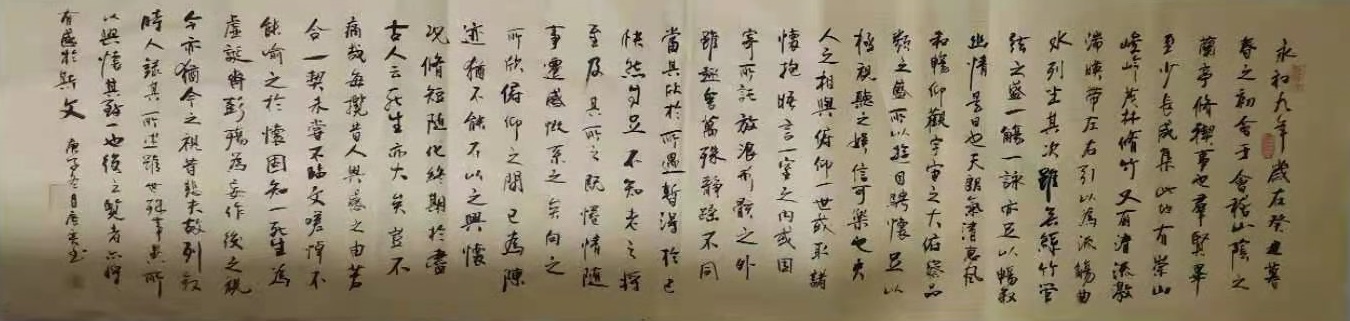 永和九年歲在癸丑暮
春之初會于會稽山陰之
蘭亭修禊事也羣賢畢
至少長咸集此地有崇山
峻岭茂林修竹又有清流激
湍暎帶左右引以為流觴曲
水列坐其次雖無絲竹管
弦之盛一觴一詠亦足以暢敘
幽情是日也天朗氣清惠風
和暢仰觀宇宙之大俯察品
類之盛所以遊目騁懷足以
極視聽之娛信可樂也夫
人之相與俯仰一世或取諸
懷抱晤言一室之內或因
寄所託放浪形骸之外
雖趣舍萬殊靜躁不同
當其欣於所遇暫得於己
快然自足不知老之將
至及其所之既惓情隨
事遷感慨系之矣向之
所欣俯仰之間已為陳
迹猶不能不以之興懷
況修短隨化終期於盡
古人云死生亦大矣豈不
痛哉每攬昔人興感之由若
合一契未嘗不臨文嗟悼不
能喻之於懷固知一死生為
虛誕齊彭殤為妄作後之視
今亦猶今之視昔悲夫故列敘
時人錄其所述雖世殊事異所
以興懷其致一也後之覽者亦將
有感於斯文
庚子冬月